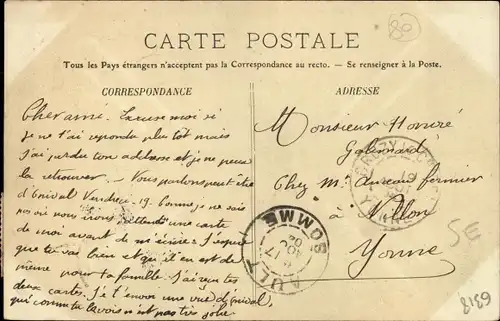 80
CARTE POSTALE
Tous les Pays étrangers n'acceptent pas la Correspondance au recto. — Se renseigner à la Poste.
CORRESPONDANCE
Cher ami. Excuse moi si
je ne t'ai repondu plus tôt mais
j'ai perdu ton address et je ne peux
la retrouver. — Vous parlons peut être
d'Onival Vendredi 19. Comme je ne sais
pas où nous irons attends une carte
de moi avant de m'écrire. J'espère
que tu vas bien et qu'il en est de
même pour ta famille. J'ai reçu tes
deux cartes. Je t'envoie une vue d'Onival,
qui comme tu le vois n'est pas très jolie
ADRESSE
Monsieur Honoré
Galimard
Chez Mr fermier
à
Yonne
AULT
SOMME
SE
8189